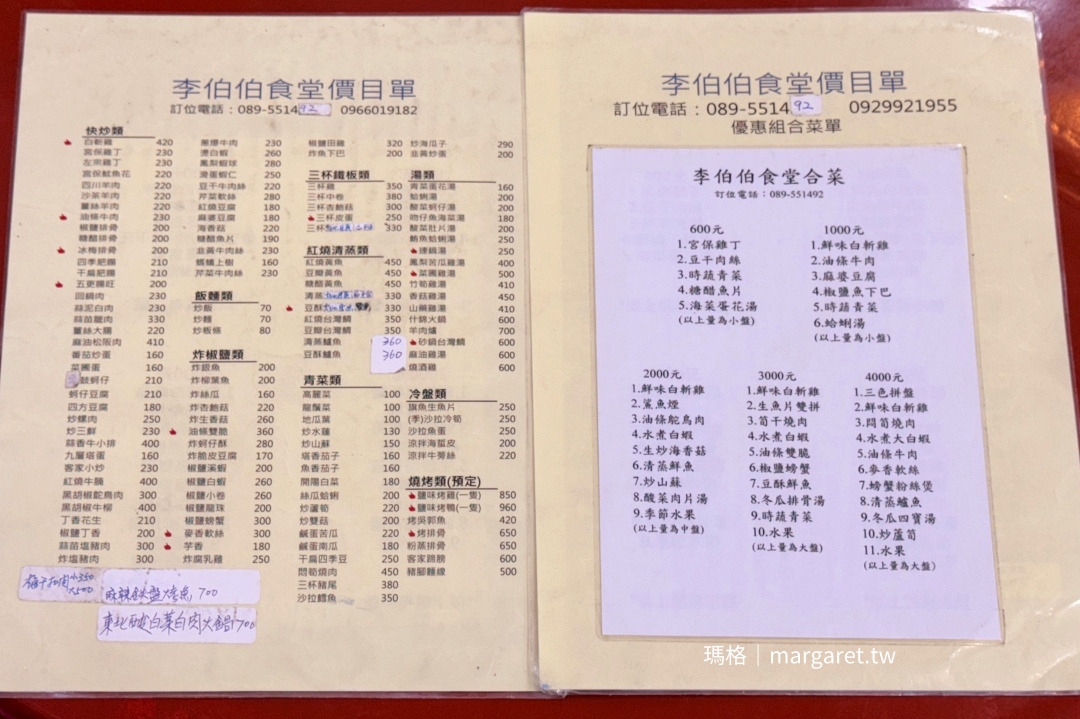 李伯伯食堂價目單
訂位電話：089-551492 0966019182
快炒類
白斬雞 420
宮保雞丁 230
左宗雞丁 230
宮保魷魚花 220
四川羊肉 220
沙茶羊肉 220
薑絲羊肉 220
油條牛肉 230
椒鹽排骨 200
糖醋排骨 200
冰梅排骨 200
四季肥腸 210
干扁肥腸 210
五更腸旺 200
回鍋肉 230
蒜泥白肉 230
蒜苗臘肉 330
薑絲大腸 220
麻油松阪肉 410
番茄炒蛋 160
菜圃蛋 160
鼓蚵仔 210
蚵仔豆腐 210
四方豆腐 180
炒螺肉 250
炒三鮮 230
蒜香牛小排 400
九層塔蛋 160
客家小炒 230
紅燒牛腩 400
黑胡椒鴕鳥肉 300
黑胡椒牛柳 400
丁香花生 210
椒鹽丁香 200
蒜苗塩豬肉 300
炸塩豬肉 300
蔥爆牛肉 230
燙白蝦 260
鳳梨蝦球 280
滑蛋蝦仁 250
豆干牛肉絲 220
芹菜軟絲 280
紅燒豆腐 180
麻婆豆腐 180
海香菇 220
糖醋魚片 190
韭黃牛肉絲 230
螞蟻上樹 160
芹菜牛肉絲 230
飯麵類
炒飯 70
炒麵 70
炒粄條 80
炸椒鹽類
炸銀魚 200
炸柳葉魚 200
炸絲瓜 160
炸杏鮑菇 220
炸生香菇 260
油條雙脆 360
炸蚵仔酥 280
炸脆皮豆腐 170
椒鹽溪蝦 200
椒鹽白蝦 260
椒鹽小卷 260
椒鹽龍珠 200
椒鹽螃蟹 300
麥香軟絲 300
芋香 180
炸腐乳雞 250
椒鹽田雞 320
炸魚下巴 200
三杯鐵板類
三杯雞 350
三杯中卷 380
三杯杏鮑菇 300
三杯皮蛋 250
三杯 330
紅燒清蒸類
紅燒黃魚 450
豆瓣黃魚 450
糖醋黃魚 450
清蒸
豆酥 330
紅燒台灣鯛 350
豆瓣台灣鯛 350
清蒸鱸魚 360
豆酥鱸魚 360
青菜類
高麗菜 100
龍鬚菜 100
地瓜葉 100
炒水蓮 130
炒山蘇 150
塔香茄子 160
魚香茄子 160
開陽白菜 180
絲瓜蛤蜊 200
炒蘆筍 220
炒雙菇 200
鹹蛋苦瓜 220
鹹蛋南瓜 180
干扁四季豆 250
悶筍燒肉 450
三杯豬尾 380
沙拉鱈魚 350
炒海瓜子 290
韭黃炒蛋 200
湯類
青菜蛋花湯 160
蛤蜊湯 200
酸菜蚵仔湯 200
吻仔魚海菜湯 180
酸菜肚片湯 200
鮪魚蛤蜊湯 250
燻鍋湯 250
鳳梨苦瓜雞湯 400
菜圃雞湯 500
竹筍雞湯 410
香菇雞湯 450
山藥雞湯 410
什錦火鍋 600
羊肉爐 700
砂鍋台灣鯛 600
麻油雞湯 600
燒酒雞 600
冷盤類
旗魚生魚片 250
(季)沙拉冷筍 250
沙拉魚蛋 250
涼拌海蜇皮 200
涼拌牛蒡絲 220
燒烤類(預定)
鹽味烤雞(一隻) 850
鹽味烤鴨(一隻) 960
烤吳郭魚 420
烤排骨 650
粉蒸排骨 650
客家蹄膀 600
豬腳麵線 500
麻辣鐵盤烤魚 700
東北酸白菜白肉火鍋 700
李伯伯食堂價目單
訂位電話：089-551492 0929921955
優惠組合菜單
李伯伯食堂合菜
訂位電話：089-551492
600元
1.宮保雞丁
2.豆干肉絲
3.時蔬青菜
4.糖醋魚片
5.海菜蛋花湯
(以上量為小盤)
1000元
1.鮮味白斬雞
2.油條牛肉
3.麻婆豆腐
4.椒鹽魚下巴
5.時蔬青菜
6.蛤蜊湯
(以上量為小盤)
2000元
1.鮮味白斬雞
2.鯊魚煙
3.油條鴕鳥肉
4.水煮白蝦
5.生炒海香菇
6.清蒸鮮魚
7.炒山蘇
8.酸菜肉片湯
9.季節水果
(以上量為中盤)
3000元
1.鮮味白斬雞
2.生魚片雙拼
3.筍干燒肉
4.水煮白蝦
5.油條雙脆
6.椒鹽螃蟹
7.豆酥鮮魚
8.冬瓜排骨湯
9.時蔬青菜
10.水果
(以上量為大盤)
4000元
1.三色拼盤
2.鮮味白斬雞
3.悶筍燒肉
4.水煮大白蝦
5.油條牛肉
6.麥香軟絲
7.螃蟹粉絲煲
8.清蒸鱸魚
9.冬瓜四寶湯
10.炒蘆筍
11.水果
(以上量為大盤)
瑪格｜margaret.tw